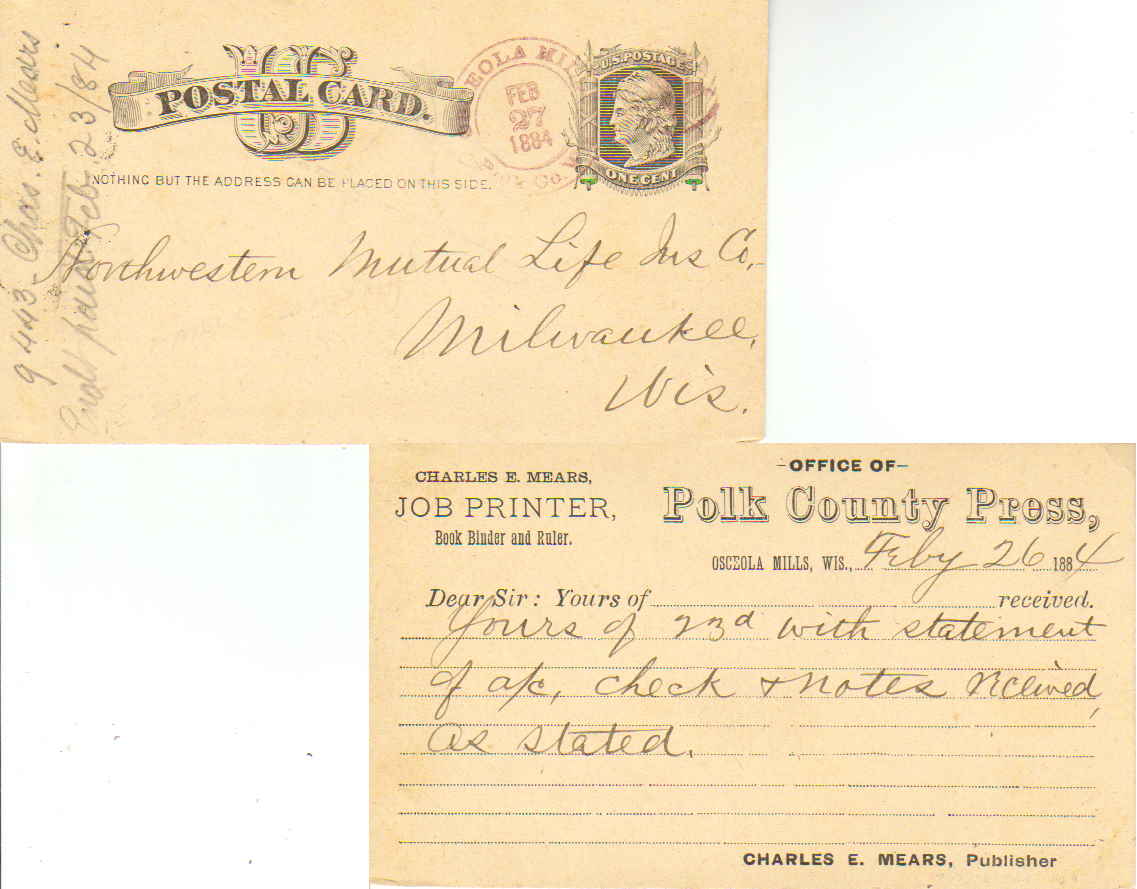 U S
POSTAL CARD.
NOTHING BUT THE ADDRESS CAN BE PLACED ON THIS SIDE.
EOLA MIL
FEB
27
1884
Co.
U.S. POSTAGE
ONE CENT
9443 Chas. E. Mears
Feb. 23/84
Northwestern Mutual Life Ins Co,
Milwaukee,
Wis.
CHARLES E. MEARS,
JOB PRINTER,
Book Binder and Ruler.
-OFFICE OF-
Polk County Press,
OSCEOLA MILLS, WIS., Feby 26 1884
Dear Sir: Yours of received.
Yours of 23d with statement
of a/c, check + notes received,
as stated.
CHARLES E. MEARS, Publisher